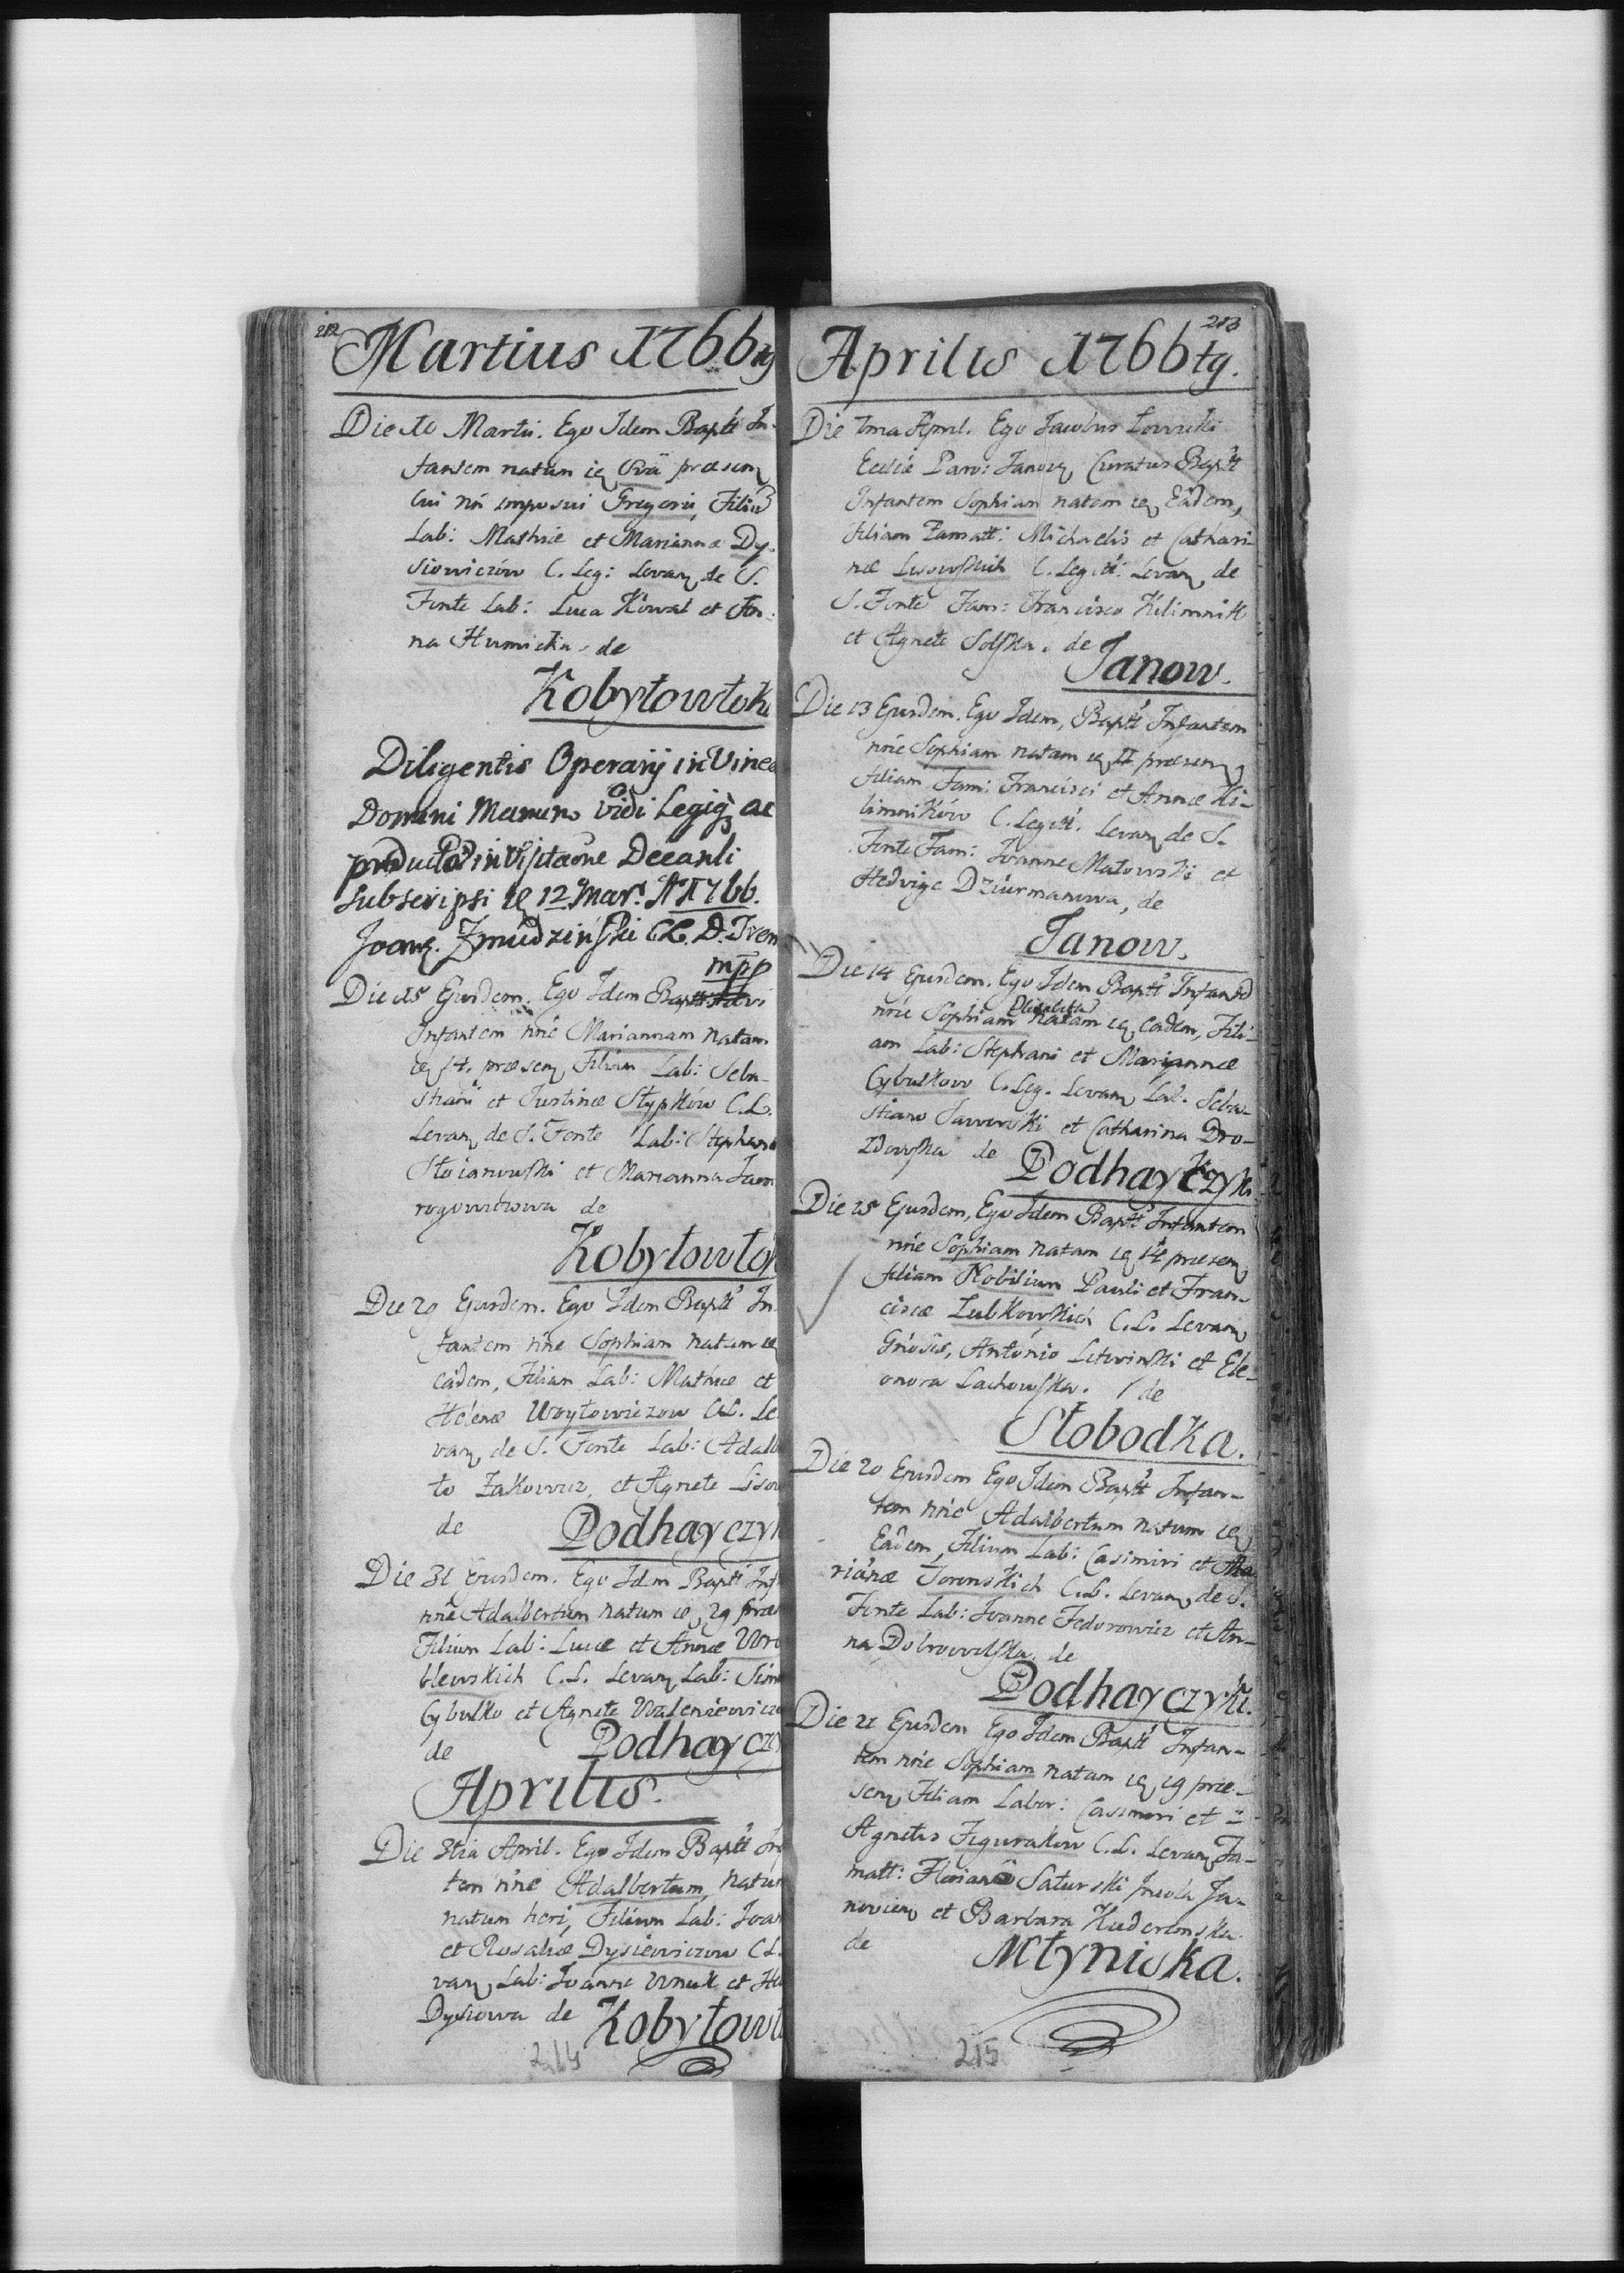 212
Martius 1766
Die 10 Martii. Ego Idem Baptt In-
fantem natum præsen
cui impo sui Gregorii, Filiū
Lab: Mathiæ et Mariannæ Dy-
siowiczów C. Leg: Levan de S.
Fonte Lab: Luca Kowal et An-
na Humicka de
Kobyłowłok
Diligentis Operarij in Vinea
Domini vidi Legiq ac
in Visitaone Decanli
subscripsi 12 Mar. A 1766.
Joan. Zmudziński D. Trem
mpp
Die 15 Ejusdem. Ego Idem Baptt
Infantem nnie Mariannam natam
14. præsen Filiam Lab: Seba-
stiani et Justinæ Stypków C.L.
Levan de S. Fonte Lab: Stephano
Stoianowski et Marianna Jaw
rogowiczowa de
Kobyłowło
Die 29 Ejusdem. Ego Idem Baptt In
fantem nnie Sophiam natam
eâdem, Filiam Lab: Mathiæ et
Helenæ Woytowiczow CL. Le
van de S. Fonte Lab: Adalb
to Zakowicz, et Agnete Liso
de
Podhayczyk
Die 31 Ejusdem. Ego Idem Baptt Inf
nnie Adalbertum natum 29 præ
Filium Lab: Lucæ et Annæ Wro
blewskich C.L. Levan Lab: Sim
Cybulko et Agnete Waleniewicz
de
Podhaycz
Aprilis.
Die 3tia April. Ego Idem Baptt In
tem nnie Adalbertum, natum
natum heri, Filium Lab: Joan
et Rosaliæ Dysiewiczow CL.
van Lab: Joanne Wnuk et He
Dysiowa de
Kobyłowł
214
213
Aprilis 1766 tg.
Die 7ma April. Ego Jacobus Łowicki
Eccliæ Paro: Janow Curatus Baptt
Infantem Sophiam natam Eâdem,
filiam Famatt: Michaelis et Cathari-
næ Lisowskich C. Legitt: Levan de
S. Fonte Fam: Francisco Kilimnik
et Agnete Solska. de
Janow.
Die 13 Ejusdem. Ego Idem, Baptt Infantem
nnie Sophiam natam II præsen
filiam Fam: Francisci et Annæ Ki-
limników C. Legitt. Levan de S.
Fonte Fam: Joanne Matowski et
Hedvige Dziurmanowa, de
Janow.
Die 14 Ejusdem. Ego Idem Baptt Infantē
nnie Sophiam Elisabetha natam eadem, Fili-
am Lab: Stephani et Mariannæ
Cybulkow C. Leg. Levan Lab. Seba-
stiano Jaworski et Catharina Dro-
zdowska de
Podhayczyki
Die 15 Ejusdem, Ego Idem Baptt Infantem
nnie Sophiam natam 14 præsen
filiam Nobilium Pauli et Fran-
ciscæ Lubkowskich C.L. Levan
Gnosis, Antonio Litwinski et Ele-
onora Lachowska. de
Słobodka.
Die 20 Ejusdem Ego Idem Baptt Infan-
tem nnie Adalbertum natum
Eâdem, Filium Lab: Casimiri et Ma
riânæ Jorenskich C.L. Levan de S.
Fonte Lab: Joanne Fedorowicz et An-
na Dobrowolska. de
Podhayczyki.
Die 21 Ejusdem Ego Idem Baptt Infan-
tem nnie Sophiam natam 19 præ-
sen, filiam Labor: Casimiri et
Agnetis Figurakow C.L. Levan Fa-
matt: Floriano Saturski Incola Ja-
novien et Barbara Kuderewska
de
Młyniska.
215